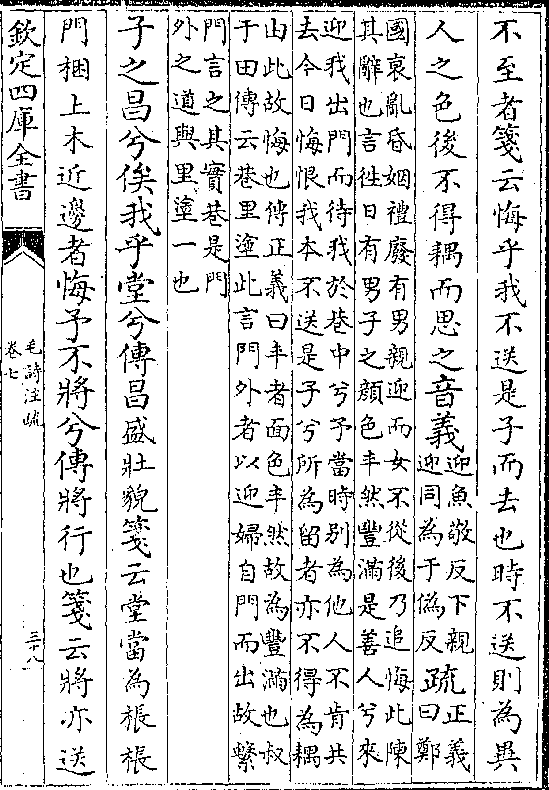 不至者箋云悔乎我不送是子而去也時不送則為異
人之色後不得耦而思之音義迎魚敬反下親
迎同為于偽反疏正義
曰鄭
國衰亂昏姻禮廢有男親迎而女不從後乃追悔此陳
其辭也言徃日有男子之顔色丰然豐滿是善人兮來
迎我出門而待我於巷中兮予當時別為他人不肯共
去今日悔恨我本不送是子兮所為留者亦不得為耦
由此故悔也傳正義曰丰者面色丰然故為豐滿也叔
于田傳云巷里塗此言門外者以迎婦自門而出故繫
門言之其實巷是門
外之道與里塗一也
子之昌兮俟我乎堂兮傳昌盛壯貌箋云堂當為棖棖
門梱上木近邊者悔予不將兮傳將行也箋云將亦送
欽定四庫全書
毛詩注疏
卷七
三十八